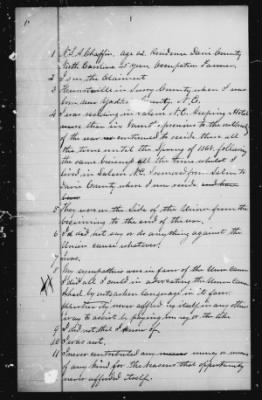 1
1 N.S.A. Chaffin, age 62. Residence Davie County
North Carolina 25 years Occupation Farmer.
2 I am the Claimant
3 Huntsville in Surry County when I was
born now Yadkin County, N.C.
4 I was residing in Salem N.C. keeping Hotel
from the outbreak
of the war continued to reside there all
the time until the Spring of 1865. following
the same business all the time whilst I
lived in Salem N.C. I moved from Salem to
Davie County where I now reside
5 They were on the Side of the Union from the
beginning to the end of the war.
6 I did not say or do anything against the
Union cause whatever.
7 none.
8 My sympathies were in favor of the Union Cause
I did all I could in advocating the Union Cause
by outspoken language in its favor.
opportunity never afforded itself in any other
way to assist by paying money or the like
9 I did not that I know of.
10 I was not.
11 I never contributed any money or means
of any kind for the reason that opportunity
never afforded itself.